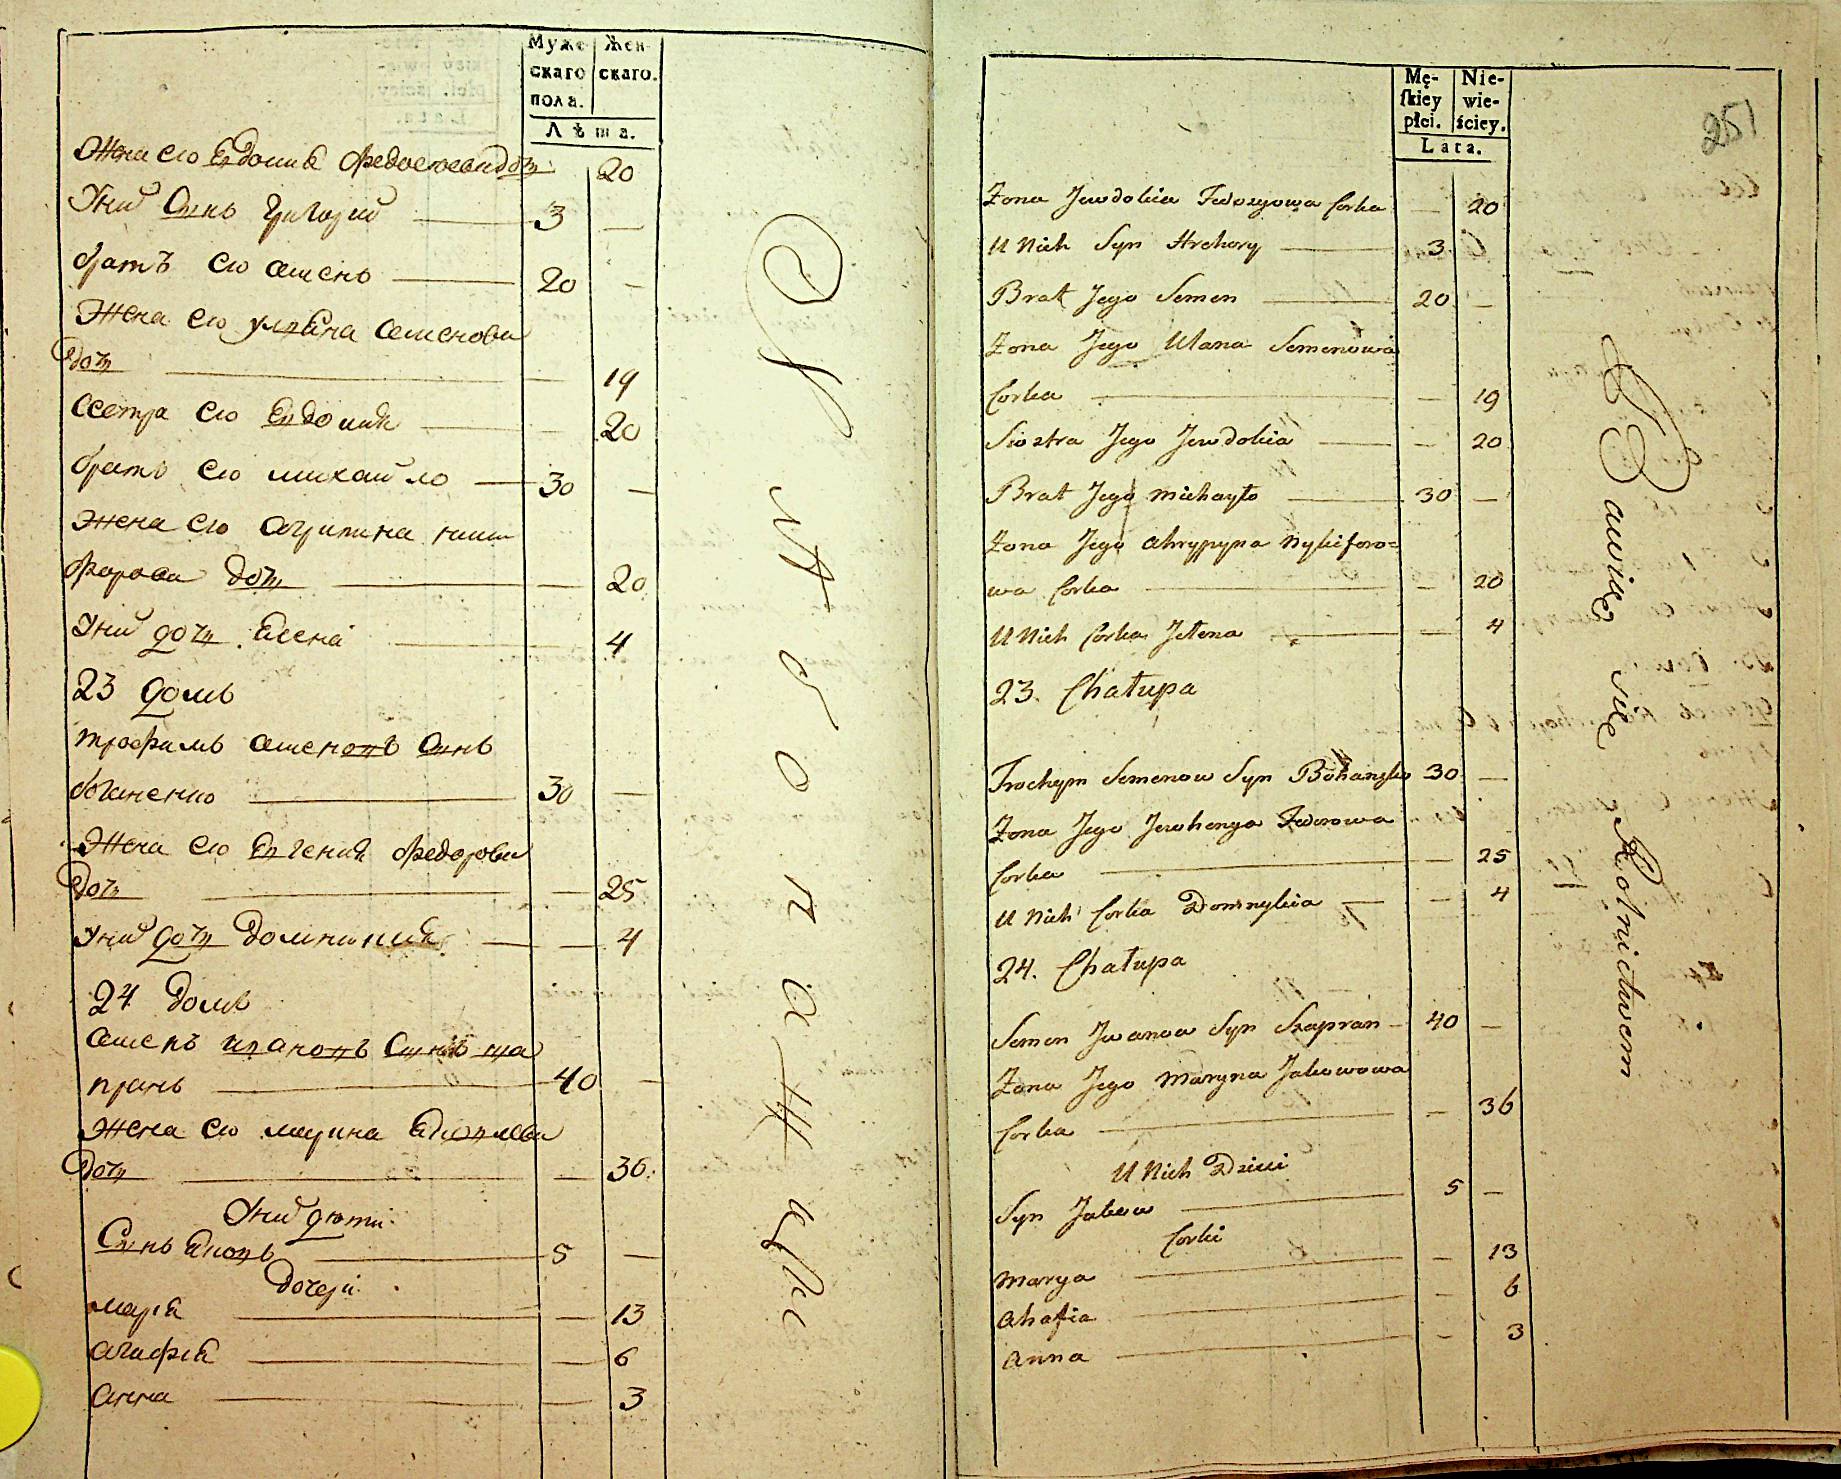 Муже-
скаго
пола.
Жен-
скаго.
Лѣта.
Жена его Евдокия Федосеева дочь 20
У них Сынъ Григорий 3
братъ его семенъ 20
Жена его улияна семенова
дочь 19
сестра его Евдокия 20
братъ его михайло 30
жена его агрипина ники
форова дочь 20
У них дочь Елена 4
23 домъ
трофимъ семеновъ Сынъ
боганенко 30
Жена его Евгения федорова
дочь 25
У них дочь доминикия 4
24 домъ
семенъ ивановъ Сынъ ша
пранъ 40
жена его марина яковлева
дочь 36
У них дети
Сынъ яковъ 5
дочери
мария 13
агафия 6
анна 3
Mę-
skiey
płci.
Nie-
wie-
ściey.
Lata.
251
Żona Jewdokia Fedosyowa Corka 20
U Nich Syn Hrehory 3
Brat Jego Semen 20
Żona Jego Ulana Semenowa
Corka 19
Siostra Jego Jewdokia 20
Brat Jego Michayło 30
Żona Jego Ahrypyna Nykiforo=
wa Corka 20
U Nich Corka Jełena 4
23. Chałupa
Trochym Semenow Syn Bohanenko 30
Żona Jego Jewhenya Fedorowa
Corka 25
U Nich Corka Domnykia 4
24. Chałupa
Semen Jwanow Syn Szapran 40
Żona Jego Maryna Jakowowa
Corka 36
U Nich Dzieci
Syn Jakow 5
Corki
Marya 13
Ahafia 6
Anna 3
Bawiące się Rolnictwem